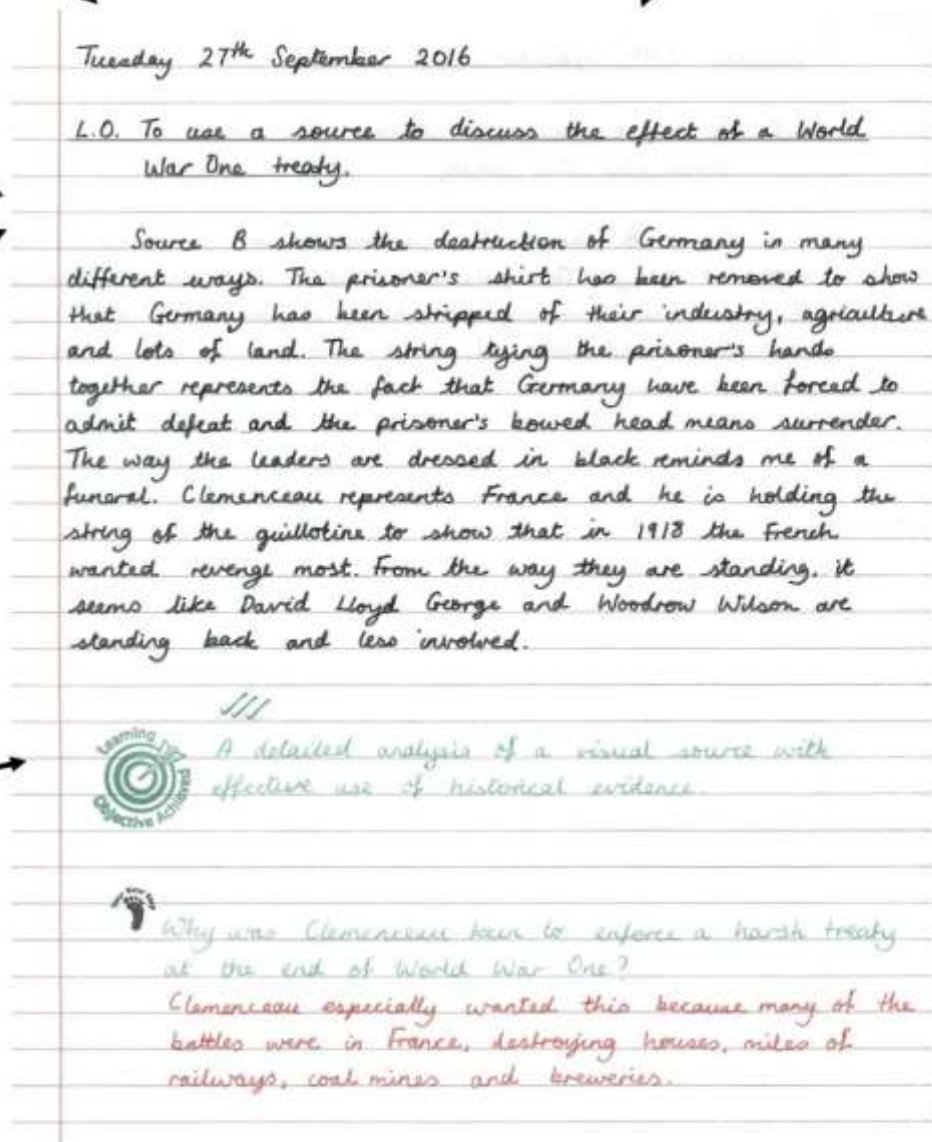 Tuesday 27th September 2016
L.O. To use a source to discuss the effect of a World
War One treaty.
Source B shows the destruction of Germany in many
different ways. The prisoner's shirt has been removed to show
that Germany has been stripped of their industry, agriculture
and lots of land. The string tying the prisoner's hands
together represents the fact that Germany have been forced to
admit defeat and the prisoner's bowed head means surrender.
The way the leaders are dressed in black reminds me of a
funeral. Clemenceau represents France and he is holding the
string of the guillotine to show that in 1918 the French
wanted revenge most. From the way they are standing, it
seems like David Lloyd George and Woodrow Wilson are
standing back and less involved.
Learning
Objective Achieved
A detailed analysis of a visual source with
effective use of historical evidence.
Why was Clemenceau keen to enforce a harsh treaty
at the end of World War One?
Clemenceau especially wanted this because many of the
battles were in France, destroying houses, miles of
railways, coal mines and breweries.